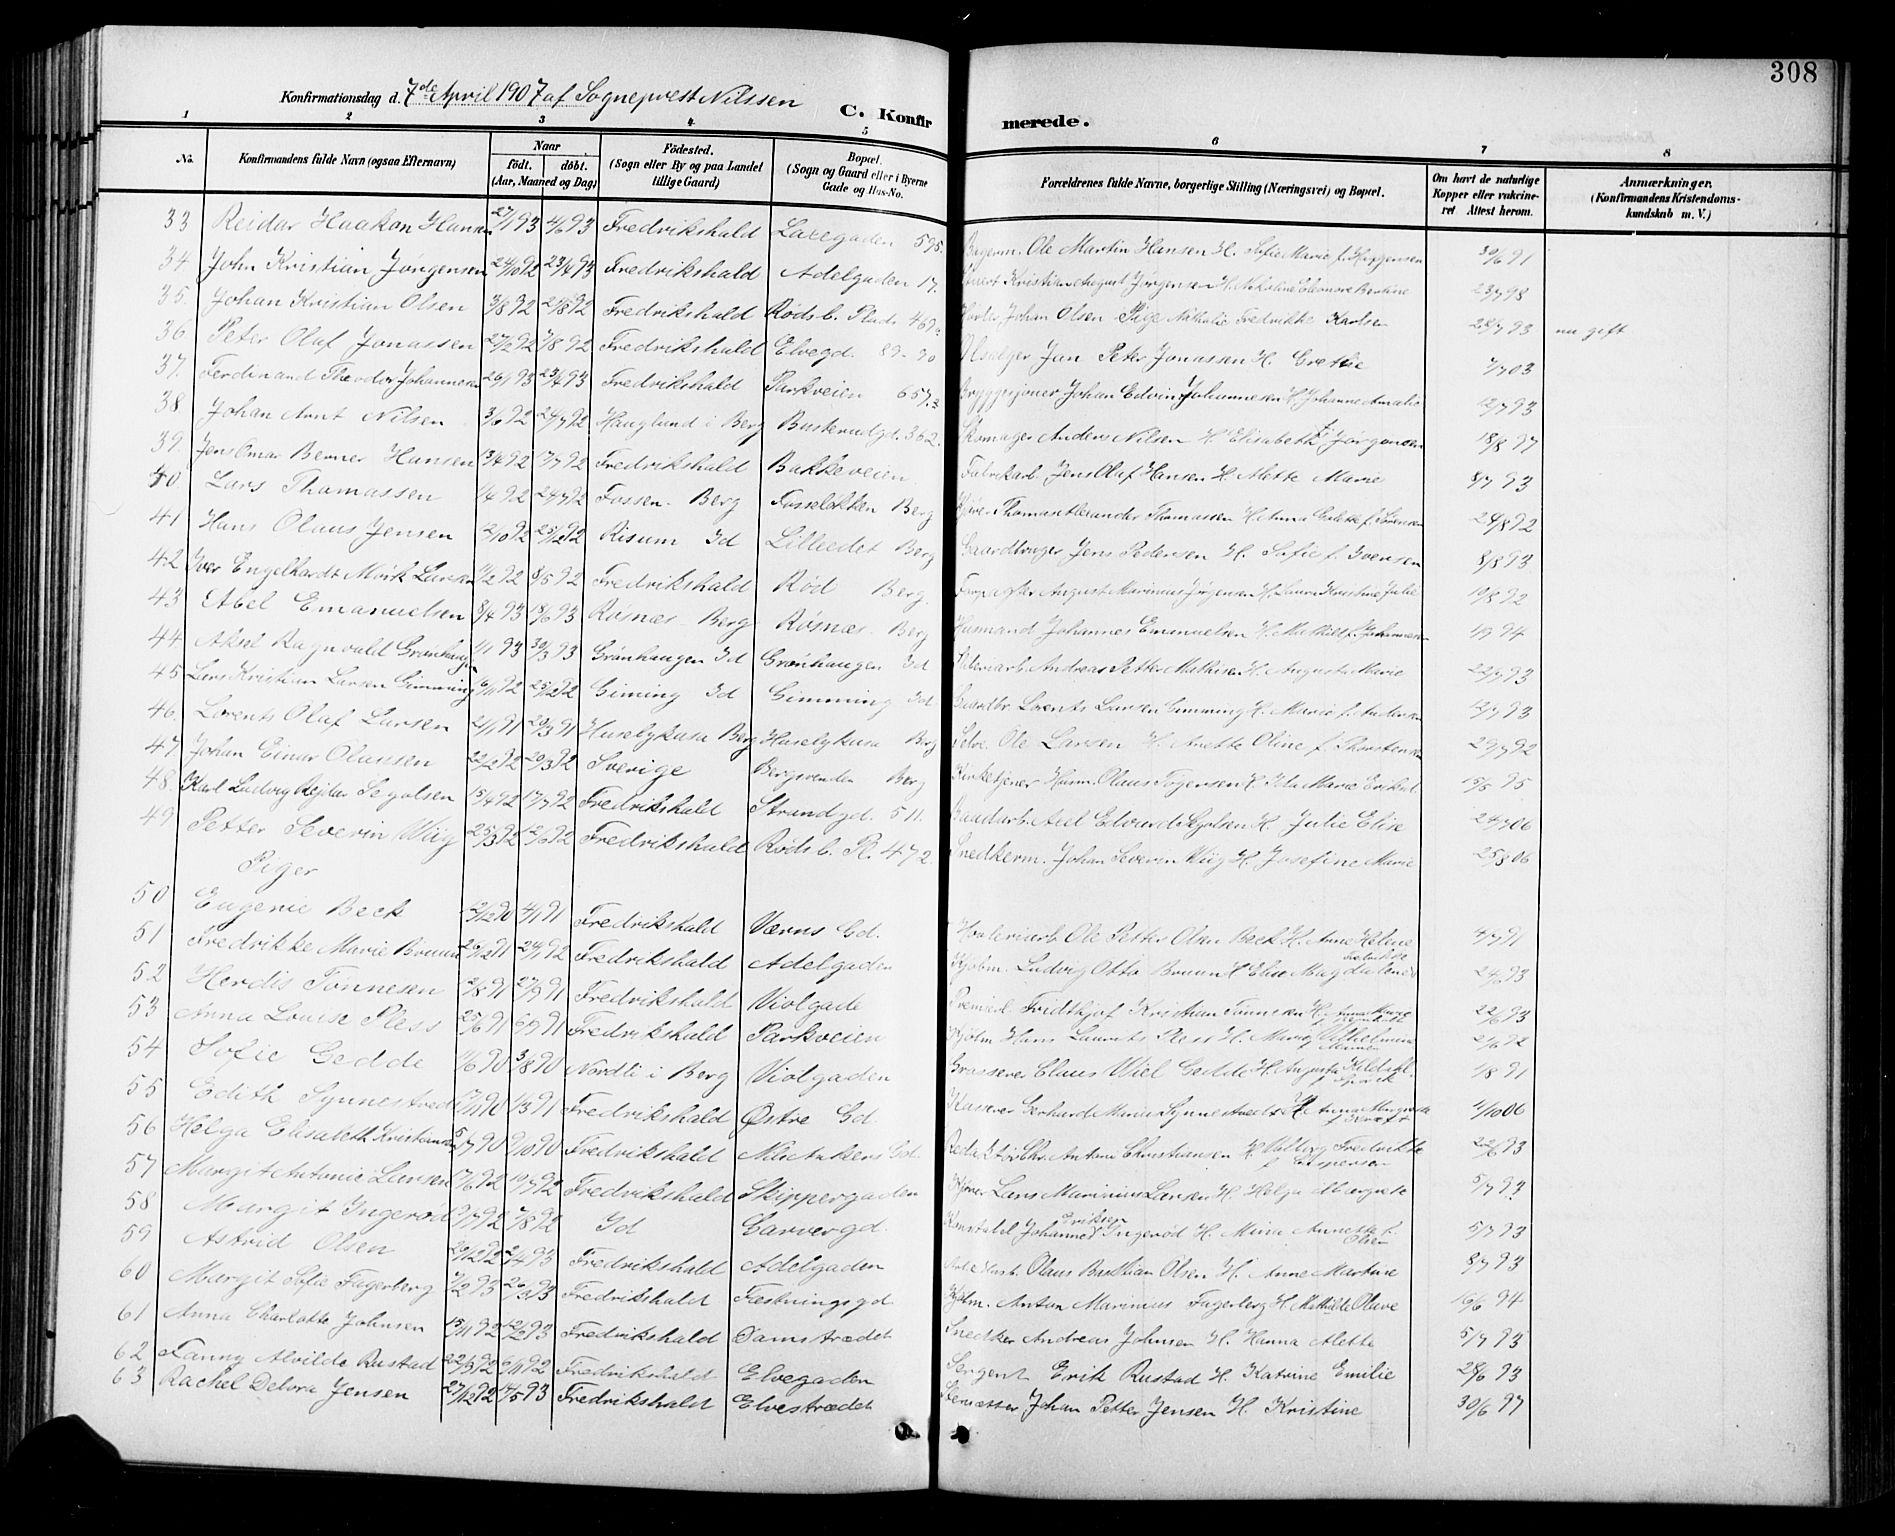 308
Konfirmationsdag d. 7de April 1907 af Sogneprest Nilssen
C. Konfirmerede.
1 2 3 4 5 6 7 8
No. Konfirmandens fulde Navn (ogsaa Efternavn) Naar født. døbt. (Aar, Maaned og Dag) Fødested. (Sogn eller By og paa Landet tillige Gaard) Bopæl. (Sogn og Gaard eller i Byerne Gade og Hus-No. Forældrenes fulde Navne, borgerlige Stilling (Næringsvei) og Bopæl. Om havt de naturlige Kopper eller vaccineret Attest herom. Anmærkninger. (Konfirmandens Kristendomskundskab m. V.)
33 Reidar Haakon Hansen 27/1 93 4/6 93 Fredrikshald Laxegaden 595. Bagerm. Ole Martin Hansen H. Sofie Marie f. 30/6 91
34 John Kristian Jørgensen 24/10 92 23/4 93 Fredrikshald Adelgaden 17. Kristian August Jørgensen H. Nikoline Eleonore Bertine 23/7 98
35. Johan Kristian Olsen 3/8 92 21/8 92 Fredrikshald Rødsb. Plads 469 Johan Olsen Pige Nathalie Fredrikke Karlsen 28/7 93 nu gift
36. Peter Olaf Jonassen 27/2 92 7/8 92 Fredrikshald Elvegd. 89-90 Jan Peter Jonassen H. Grethe 7/7 03
37. Ferdinand Theodor Johannesen 26/1 93 23/4 93 Fredrikshald Parkveien 657. Bryggesjouer Johan Edvin Johannesen H. Johanne Amalie 12/7 93
38 Johan Arnt Nilsen 3/6 92 24/7 92 Hauglund i Berg Buskerudgd. 362. Skomager Anders Nilsen H. Elisabeth f. Jørgensen 18/8 97
39. Jens Omar Berner Hansen 13/4 92 17/7 92 Fredrikshald Bakkeveien Fabrikarb. Jens Olaf Hansen H. Mette Marie 8/7 93
40 Lars Thomassen 1/4 92 24/7 92 Fossen. Berg Fosseløkken Berg Thomas Alexander Thomassen H. Anna f. Sørensen 24/8 92
41 Hans Olaus Jensen 2/10 92 25/12 92 Risum Id Lilleedet Berg Gaardbruger Jens Pedersen H. Sofie f. Iversen 8/8 93
42 Iver Engelhardt Mørk Larsen 11/2 92 8/5 92 Fredrikshald Rød Berg. August Marinius Jørgensen H. Laura Kristine Julie 10/8 92
43 Abel Emanuelsen 8/4 93 18/6 93 Rosnæs. Berg Rosnæs. Berg Husmand Johannes Emanuelsen H. Mathilde f. Johannesen 1/9 94
44 Aksel Ragnvald Grønhaugen 1/1 93 30/3 93 Grønhaugen Id Grønhaugen Id Andreas Petter Mathisen H. Augusta Marie 22/7 93
45 Lars Kristian Larsen Gimming 16/11 92 25/12 92 Giming Id Gimming Id. Gaardbr. Lorents Larsen Gimming H. Marie f. Andersen 2/7 93
46. Lorents Olaf Larsen 21/1 91 20/3 91 Huselykusa Berg Huselykusa Berg Selve. Ole Larsen H. Anette Oline f. Thorstensen 29/7 92
47 Johan Einar Olausen 22/12 92 20/3 92 Sverige Bergsvenden Berg Kirketjener Olaus H. Ida Marie 15/5 95
48. Karl Ludvig Rejdar Segolsen 15/4 92 17/7 92 Fredrikshald Strandgd. 511. Axel Edvard Segolsen H. Julie Elise 24/7 06
49 Petter Severin Wiig 25/3 92 12/6 92 Fredrikshald Rødsb. Pl. 472. Snedkerm. Johan Severin Wiig H. Josefine Marie 25/8 06
Piger
50 Eugenie Beck 12/12 90 4/1 91 Fredrikshald Værns Gd. Ole Petter Olsen Beck H. Anne Helene 4/7 91
51 Fredrikke Marie Bruun 26/12 91 24/1 92 Fredrikshald Adelgaden Kjøbm. Ludvig Otto Bruun H. Elise Magdalene 24/6 93
52 Herdis Tønnesen 12/8 91 27/9 91 Fredrikshald Violgade Premierl. Fridthjof Kristian Tønnesen H. Anna Marie 22/6 93
53 Anna Louise Pless 25/6 91 6/9 91 Fredrikshald Parkveien Kjøbm. Hans Laurits Pless H. Marie Vilhelmine 21/6 92
54 Sofie Gedde 11/6 90 3/8 90 Nordli i Berg Violgaden Grosserer Claus Wiel Gedde H. Augusta Kildahl 1/8 91
55 Edith Synnestved 17/11 90 1/3 91 Fredrikshald Østre Gd. Kasserer Gerhard Marius Synnestvedt H. Anna Margrete 4/10 06
56 Helga Elisabeth Kristiansen 5/7 90 9/10 90 Fredrikshald Nils Ankers Gd. Redaktør Chr. Anton Christiansen H. Valborg Fredrikke f. Caspersen 22/6 93
57 Margit Antonie Larsen 17/6 92 10/7 92 Fredrikshald Skippergaden Lars Marinius Larsen H. Helga Margrete 5/7 93
58 Margit Ingerød 9/7 92 7/8 92 Id Garvergd. Konstabel Johannes Eriksen Ingerød H. Mina Annette f. Olsen 5/7 93
59 Astrid Olsen 26/12 92 2/4 93 Fredrikshald Adelgaden Olaus Bastian Olsen H. Anne Martine 8/7 93
60 Margit Sofie Fagerberg 7/2 93 26/3 93 Fredrikshald Fæstningsgd. Kjøbm. Anton Marinius Fagerberg H. Mathilde Olave 16/6 94
61 Anna Charlotte Johnsen 15/11 92 12/2 93 Fredrikshald Damstrædet Snedker Andreas Johnsen H. Hanna Alette 5/7 93
62 Fanny Alvilde Rustad 22/9 92 6/11 92 Fredrikshald Elvegaden Sergent Erik Rustad H. Katrine Emilie 28/6 93
63 Rachel Debora Jensen 27/12 92 14/5 93 Fredrikshald Elvestrædet Stensætter Johan Petter Jensen H. Kristine 30/6 97